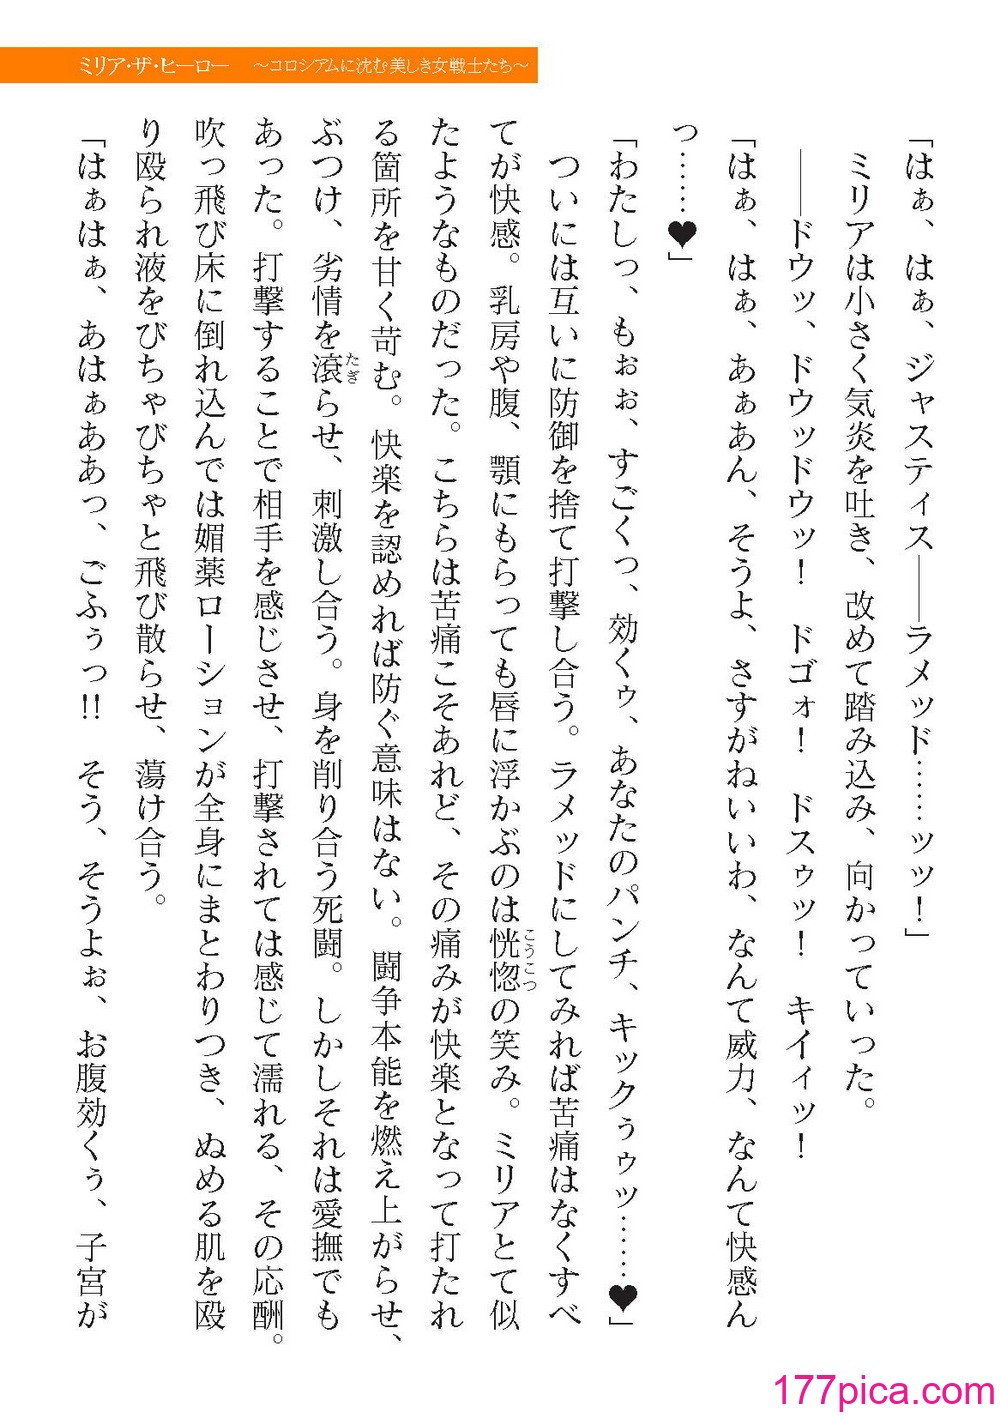 ミリア・ザ・ヒーロー　～コロシアムに沈む美しき女戦士たち～
「はぁ、はぁ、ジャスティス――ラメッド……ッッ！」
　ミリアは小さく気炎を吐き、改めて踏み込み、向かっていった。
　――ドウッ、ドウッドウッ！　ドゴォ！　ドスゥッ！　キイィッ！
「はぁ、はぁ、あぁあん、そうよ、さすがねいいわ、なんて威力、なんて快感ん
っ……♥」
「わたしっ、もぉぉ、すごくっ、効くゥ、あなたのパンチ、キックぅゥッ……♥」
　ついには互いに防御を捨て打撃し合う。ラメッドにしてみれば苦痛はなくすべ
てが快感。乳房や腹、顎にもらっても唇に浮かぶのは恍惚の笑み。ミリアとて似
こうこつ
たようなものだった。こちらは苦痛こそあれど、その痛みが快楽となって打たれ
る箇所を甘く苛む。快楽を認めれば防ぐ意味はない。闘争本能を燃え上がらせ、
ぶつけ、劣情を滾らせ、刺激し合う。身を削り合う死闘。しかしそれは愛撫でも
たぎ
あった。打撃することで相手を感じさせ、打撃されては感じて濡れる、その応酬。
吹っ飛び床に倒れ込んでは媚薬ローションが全身にまとわりつき、ぬめる肌を殴
り殴られ液をびちゃびちゃと飛び散らせ、蕩け合う。
「はぁはぁ、あはぁああっ、ごふぅっ!!　そう、そうよぉ、お腹効くぅ、子宮が
177pica.com